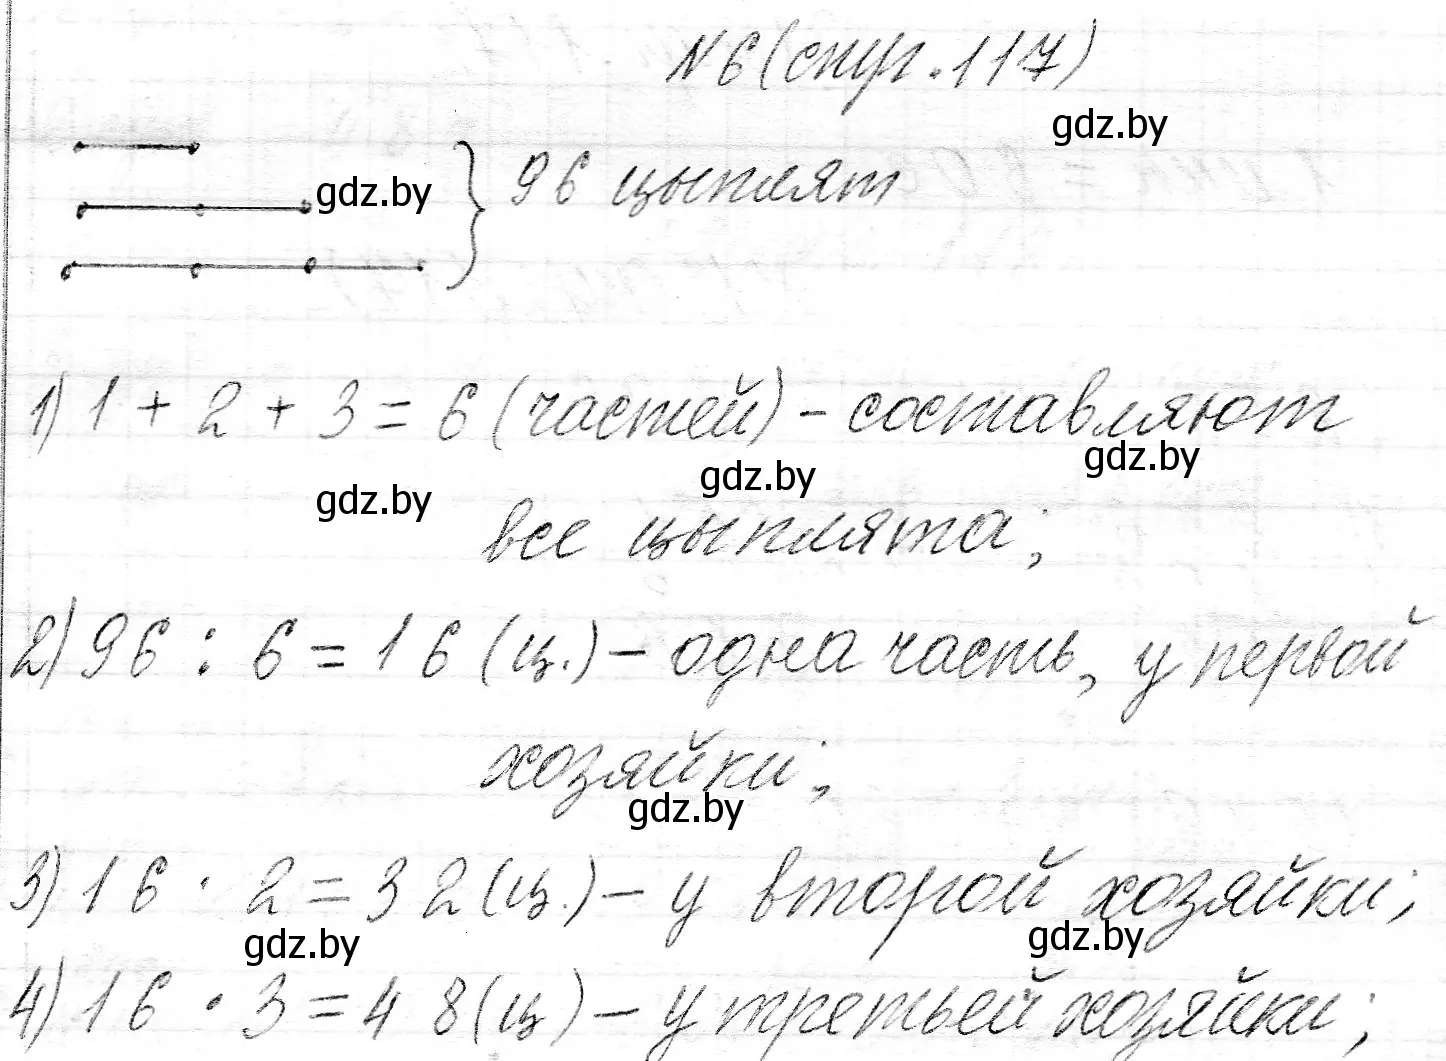 №6 (стр. 117)
gdz.by
gdz.by
96 цыплят
1) 1 + 2 + 3 = 6 (частей) - составляют
gdz.by
gdz.by
gdz.by
все цыплята;
2) 96 : 6 = 16 (ц.) - одна часть, у первой
хозяйки;
gdz.by
3) 16 · 2 = 32 (ц.) - у второй хозяйки;
gdz.by
gdz.by
4) 16 · 3 = 48 (ц) - у третьей хозяйки;